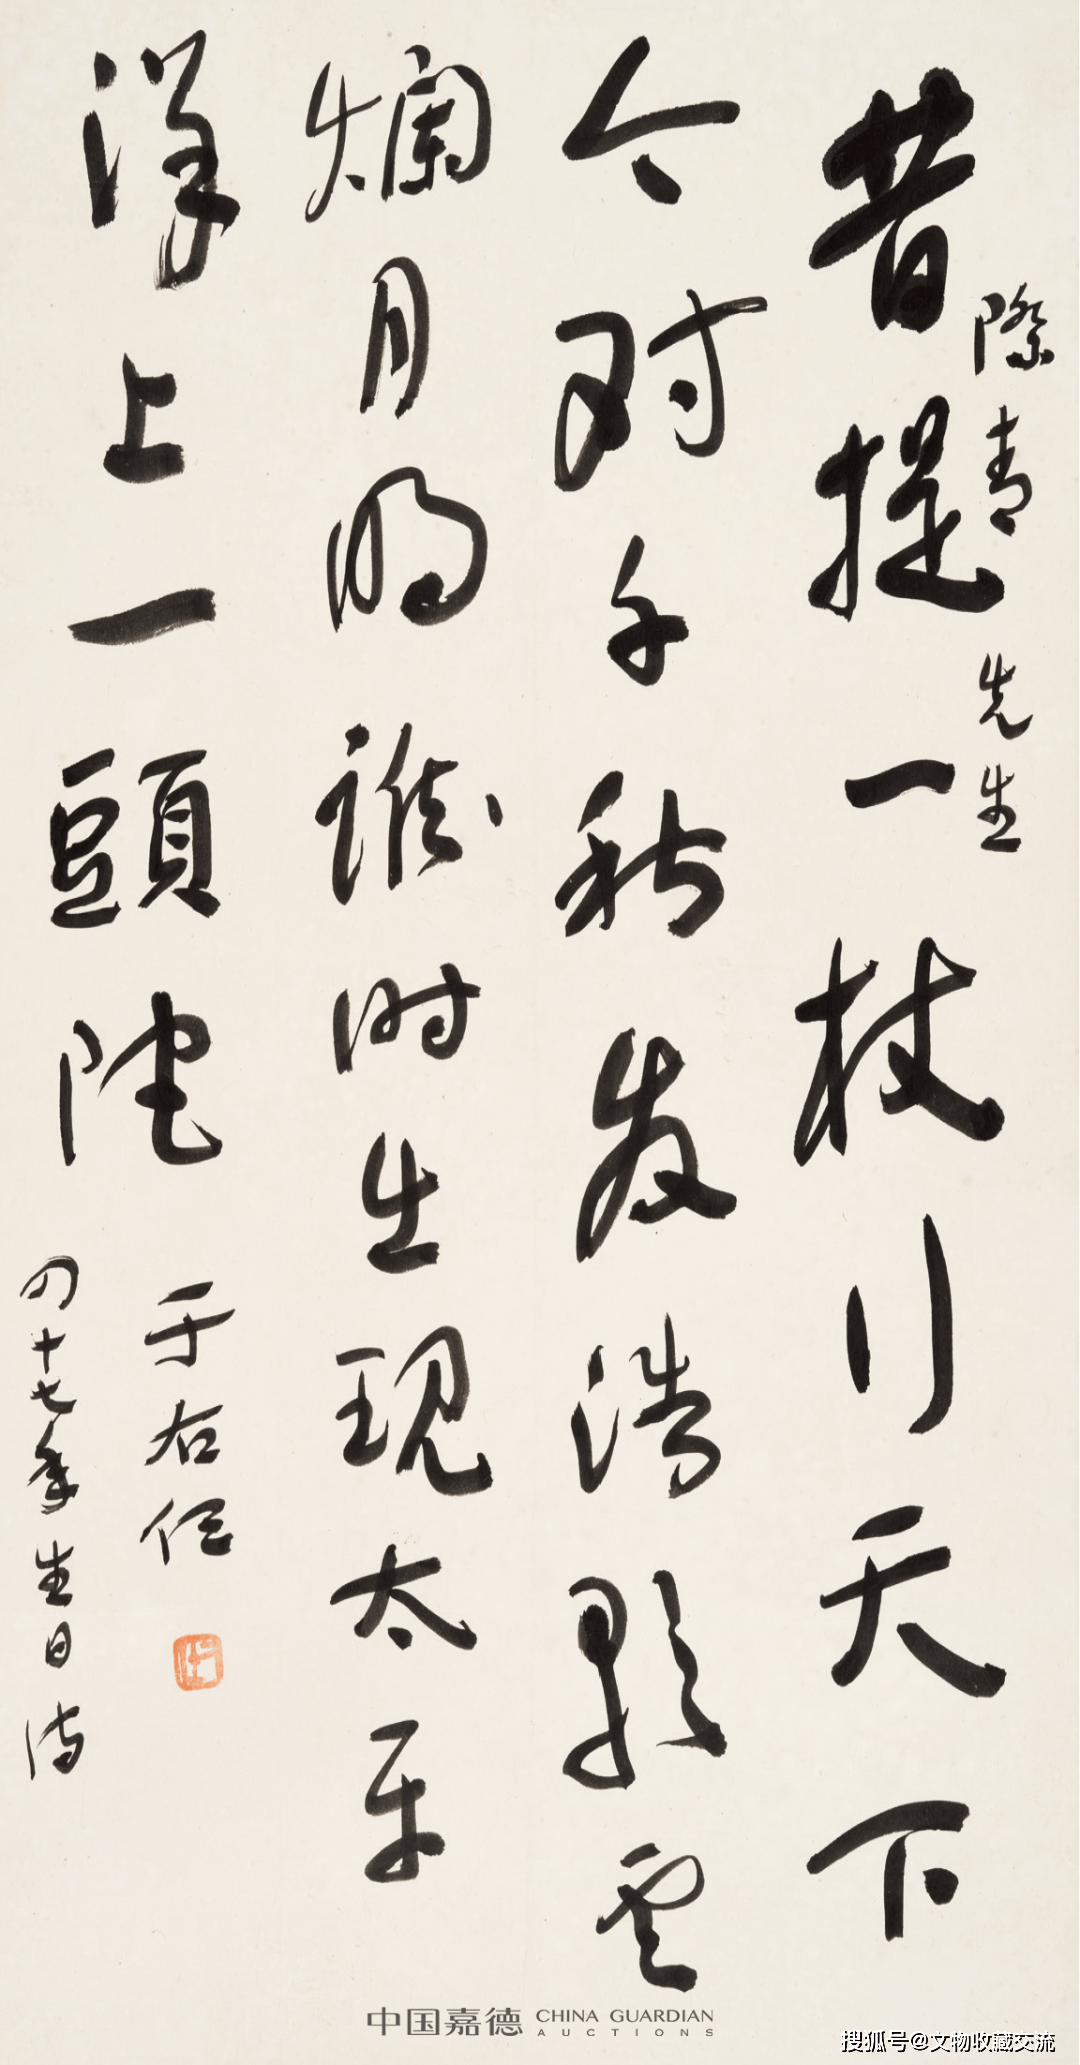 際青先生
昔提一杖行天下
今對千秋發浩歌雲
爛月明誰時生現太平
洋上一頭陀
于右任
四十七年生日詩
中国嘉德 CHINA GUARDIAN
AUCTIONS
搜狐号@文物收藏交流